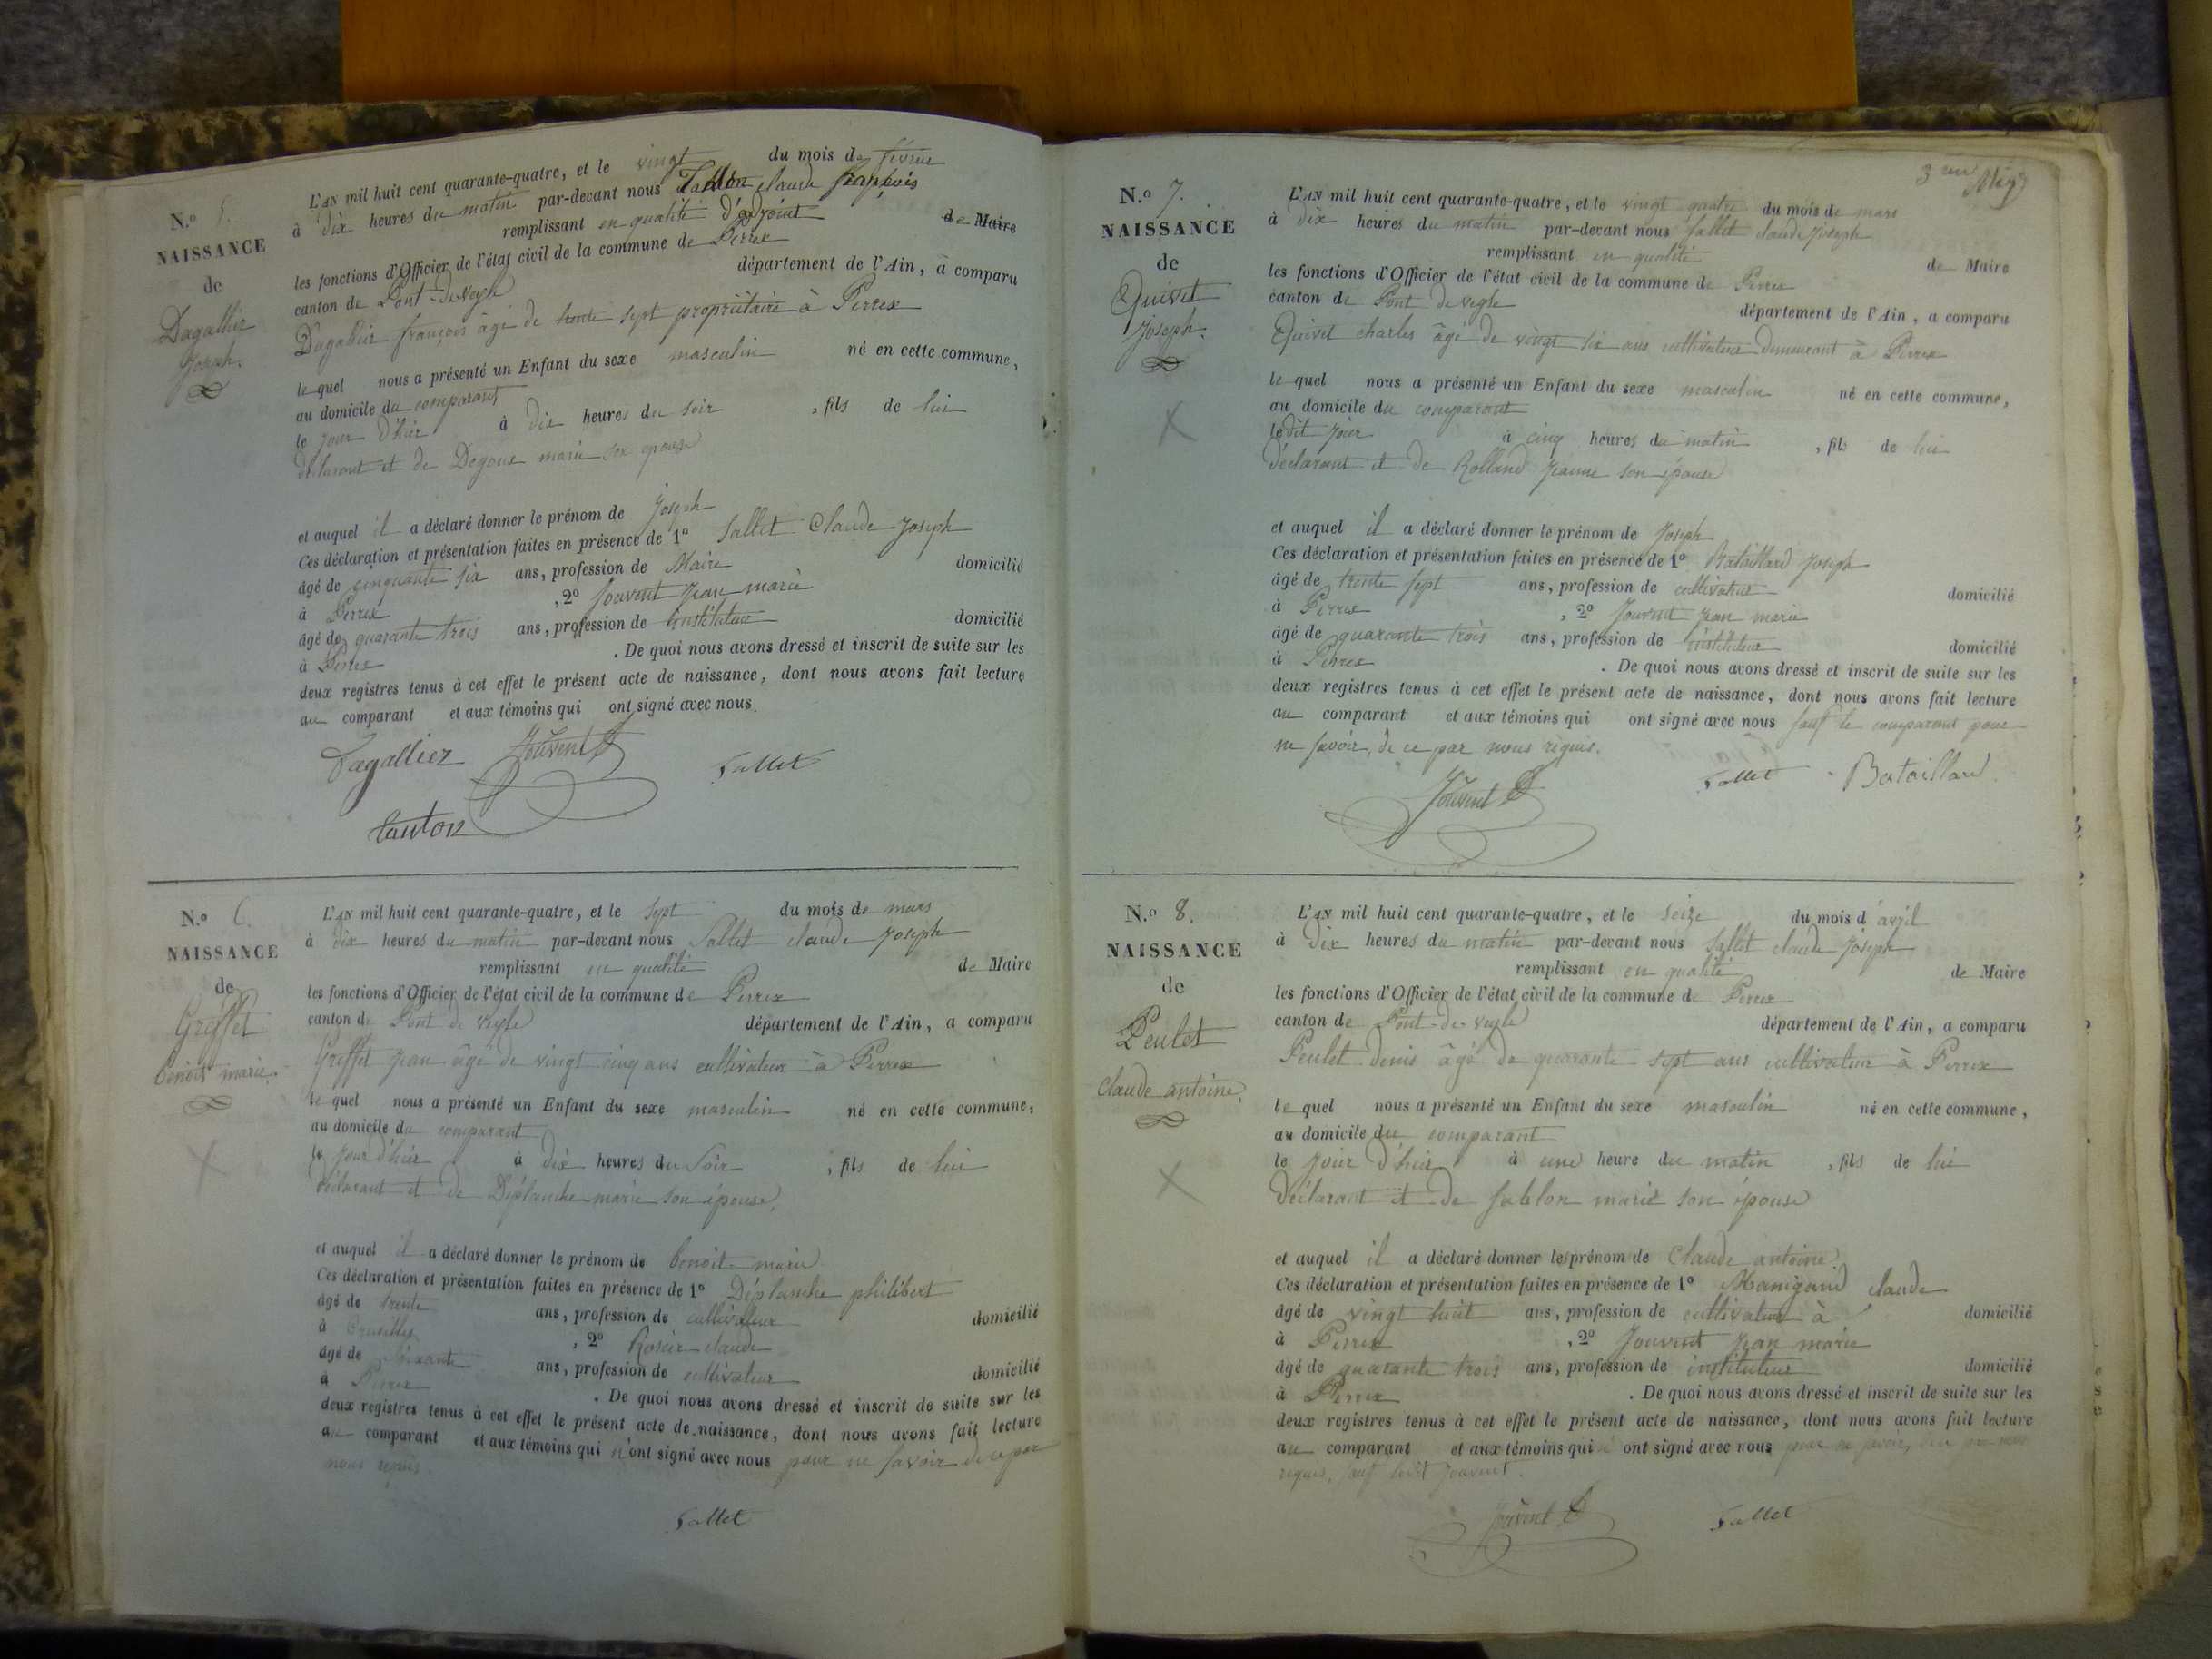 N.o 5.
NAISSANCE
de
Dagallier
Joseph.
L'AN mil huit cent quarante-quatre, et le vingt du mois de février
à dix heures du matin par-devant nous claude françois
remplissant en qualité d'adjoint de Maire
les fonctions d'Officier de l'état civil de la commune de Perrex
canton de Pont-de-Veyle département de l'Ain, a comparu
Dagallier françois âgé de trente sept propriétaire à Perrex
le quel nous a présenté un Enfant du sexe masculin né en cette commune,
au domicile du comparant
le jour d'hier à dix heures du soir , fils de lui
déclarant et de Degoux marie son épouse
et auquel il a déclaré donner le prénom de Joseph
Ces déclaration et présentation faites en présence de 1o Sallet Claude Joseph
âgé de cinquante six ans, profession de Maire domicilié
à Perrex , 2o Jouvent Jean marie
âgé de quarante trois ans, profession de instituteur domicilié
à Perrex . De quoi nous avons dressé et inscrit de suite sur les
deux registres tenus à cet effet le présent acte de naissance, dont nous avons fait lecture
au comparant et aux témoins qui ont signé avec nous.
Dagallier Jouvent Sallet
N.o 6.
NAISSANCE
de
Greffet
benoit marie.
L'AN mil huit cent quarante-quatre, et le sept du mois de mars
à dix heures du matin par-devant nous Sallet claude Joseph
remplissant en qualité de Maire
les fonctions d'Officier de l'état civil de la commune de Perrex
canton de Pont de Veyle département de l'Ain, a comparu
Greffet Jean âgé de vingt cinq ans cultivateur à Perrex
le quel nous a présenté un Enfant du sexe masculin né en cette commune,
au domicile du comparant
le jour d'hier à dix heures du soir , fils de lui
déclarant et de Déplanche marie son épouse,
et auquel il a déclaré donner le prénom de benoit marie
Ces déclaration et présentation faites en présence de 1o Déplanche philibert
âgé de trente ans, profession de cultivateur domicilié
à , 2o claude
âgé de ans, profession de cultivateur domicilié
à Perrex . De quoi nous avons dressé et inscrit de suite sur les
deux registres tenus à cet effet le présent acte de naissance, dont nous avons fait lecture
au comparant et aux témoins qui n'ont signé avec nous pour ne savoir de ce par
nous requis.
Sallet
N.o 7.
NAISSANCE
de
Quivet
Joseph.
L'AN mil huit cent quarante-quatre, et le vingt quatre du mois de mars
à dix heures du matin par-devant nous Sallet claude Joseph
remplissant en qualité de Maire
les fonctions d'Officier de l'état civil de la commune de Perrex
canton de Pont de Veyle département de l'Ain, a comparu
Quivet charles âgé de vingt six ans cultivateur demeurant à Perrex
le quel nous a présenté un Enfant du sexe masculin né en cette commune,
au domicile du comparant
ledit jour à cinq heures du matin , fils de lui
déclarant et de Rolland Jeanne son épouse
et auquel il a déclaré donner le prénom de Joseph
Ces déclaration et présentation faites en présence de 1o Bataillard Joseph
âgé de trente sept ans, profession de cultivateur domicilié
à Perrex , 2o Jouvent Jean marie
âgé de quarante trois ans, profession de instituteur domicilié
à Perrex . De quoi nous avons dressé et inscrit de suite sur les
deux registres tenus à cet effet le présent acte de naissance, dont nous avons fait lecture
au comparant et aux témoins qui ont signé avec nous sauf le comparant pour
ne savoir, de ce par nous requis.
Jouvent Sallet Bataillard
N.o 8.
NAISSANCE
de
Peulet
claude antoine.
L'AN mil huit cent quarante-quatre, et le seize du mois d'avril
à dix heures du matin par-devant nous Sallet claude Joseph
remplissant en qualité de Maire
les fonctions d'Officier de l'état civil de la commune de Perrex
canton de Pont-de-Veyle département de l'Ain, a comparu
Peulet denis âgé de quarante sept ans cultivateur à Perrex
le quel nous a présenté un Enfant du sexe masculin né en cette commune,
au domicile du comparant
le jour d'hier à une heure du matin , fils de lui
déclarant et de Sablon marie son épouse
et auquel il a déclaré donner les prénom de Claude antoine.
Ces déclaration et présentation faites en présence de 1o Manigand claude
âgé de vingt huit ans, profession de cultivateur à domicilié
à Perrex , 2o Jouvent Jean marie
âgé de quarante trois ans, profession de instituteur domicilié
à Perrex . De quoi nous avons dressé et inscrit de suite sur les
deux registres tenus à cet effet le présent acte de naissance, dont nous avons fait lecture
au comparant et aux témoins qui ont signé avec nous pour ne savoir, de ce par nous
requis, sauf ledit Jouvent.
Jouvent Sallet